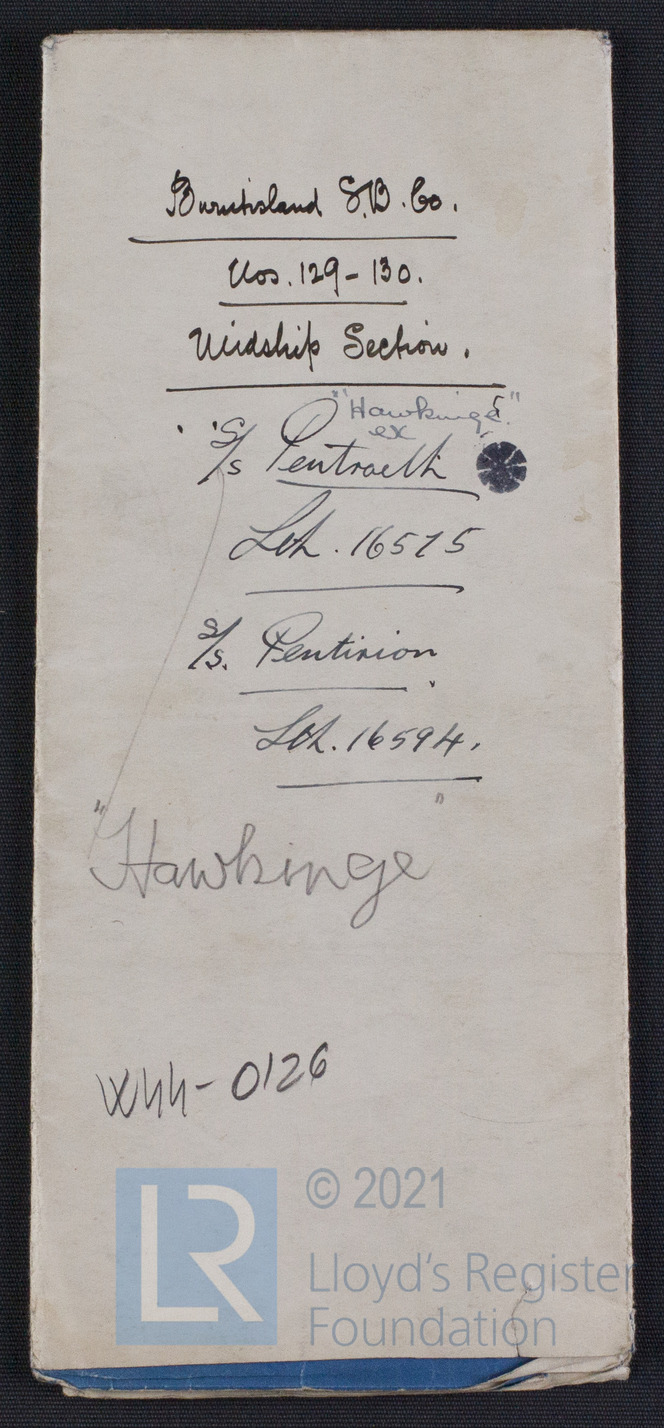 Burntisland S.B. Co.
Nos. 129-130.
Midship Section.
"Hawkinge"
ex
S/s Pentraeth
Lth. 16575
S/s. Pentirion
Lth. 16594.
"Hawkinge"
W44-0126
LR
© 2021
Lloyd's Register
Foundation